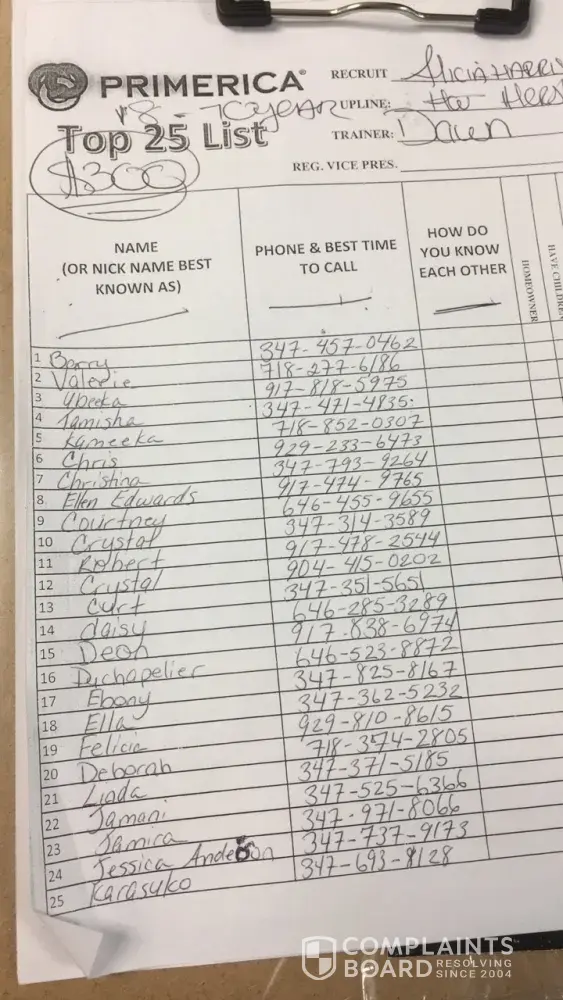 PRIMERICA®
RECRUIT Alicia HARRIS
UPLINE:
TRAINER: Dawn
REG. VICE PRES.
Top 25 List
$300
NAME
(OR NICK NAME BEST
KNOWN AS)
PHONE & BEST TIME
TO CALL
HOW DO
YOU KNOW
EACH OTHER
HOMEOWNER
HAVE CHILDREN
1 Berry 347-457-0462
2 Valerie 718-277-6186
3 917-818-5975
4 Tamisha 347-471-4835
5 Kameeka 718-852-0307
6 Chris 929-233-6473
7 Christina 347-793-9264
8 Ellen Edwards 917-474-9765
9 Courtney 646-455-9655
10 Crystal 347-314-3589
11 Robert 917-478-2544
12 Crystal 904-415-0202
13 Curt 347-351-5651
14 daisy 646-285-3289
15 Deon 917-838-6974
16 646-523-8872
17 Ebony 347-825-8167
18 Ella 347-362-5232
19 Felicia 929-810-8615
20 Deborah 718-374-2805
21 Linda 347-371-5185
22 Jamani 347-525-6366
23 Jamira 347-971-8066
24 Jessica Anderson 347-737-9173
25 Karasuko 347-693-8128
COMPLAINTS
BOARD RESOLVING
SINCE 2004